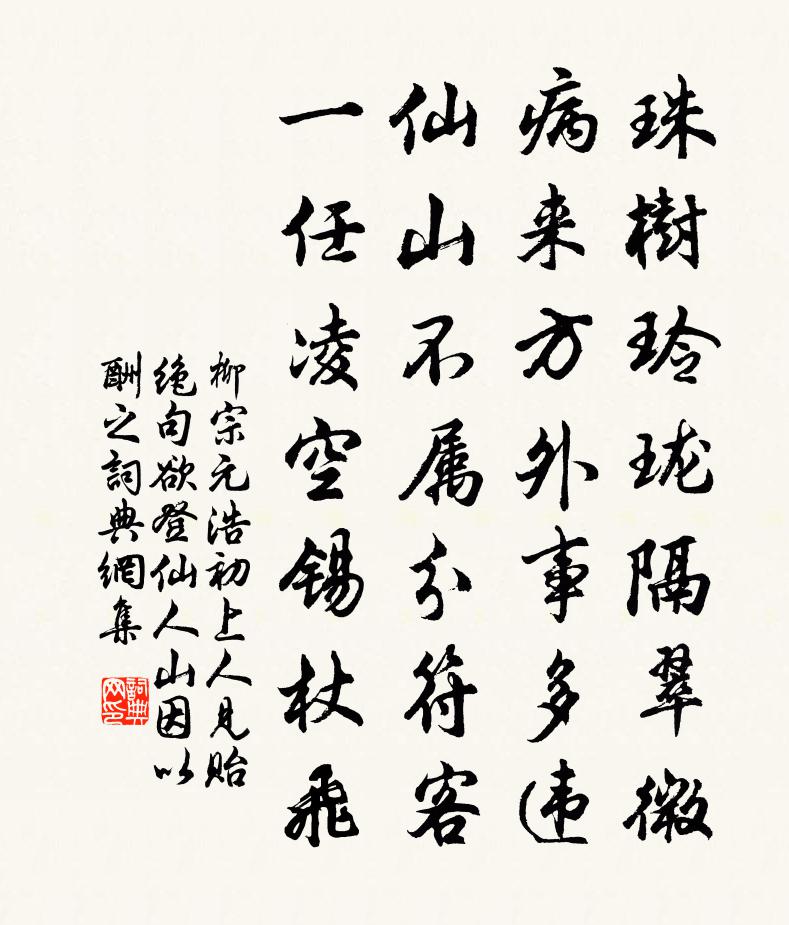 珠樹玲珑隔翠微
病来方外事多违
仙山不属分符客
一任凌空锡杖飛
柳宗元浩初上人見貽
絶句欲登仙人山因以
酬之詞典網集
詞典
网印